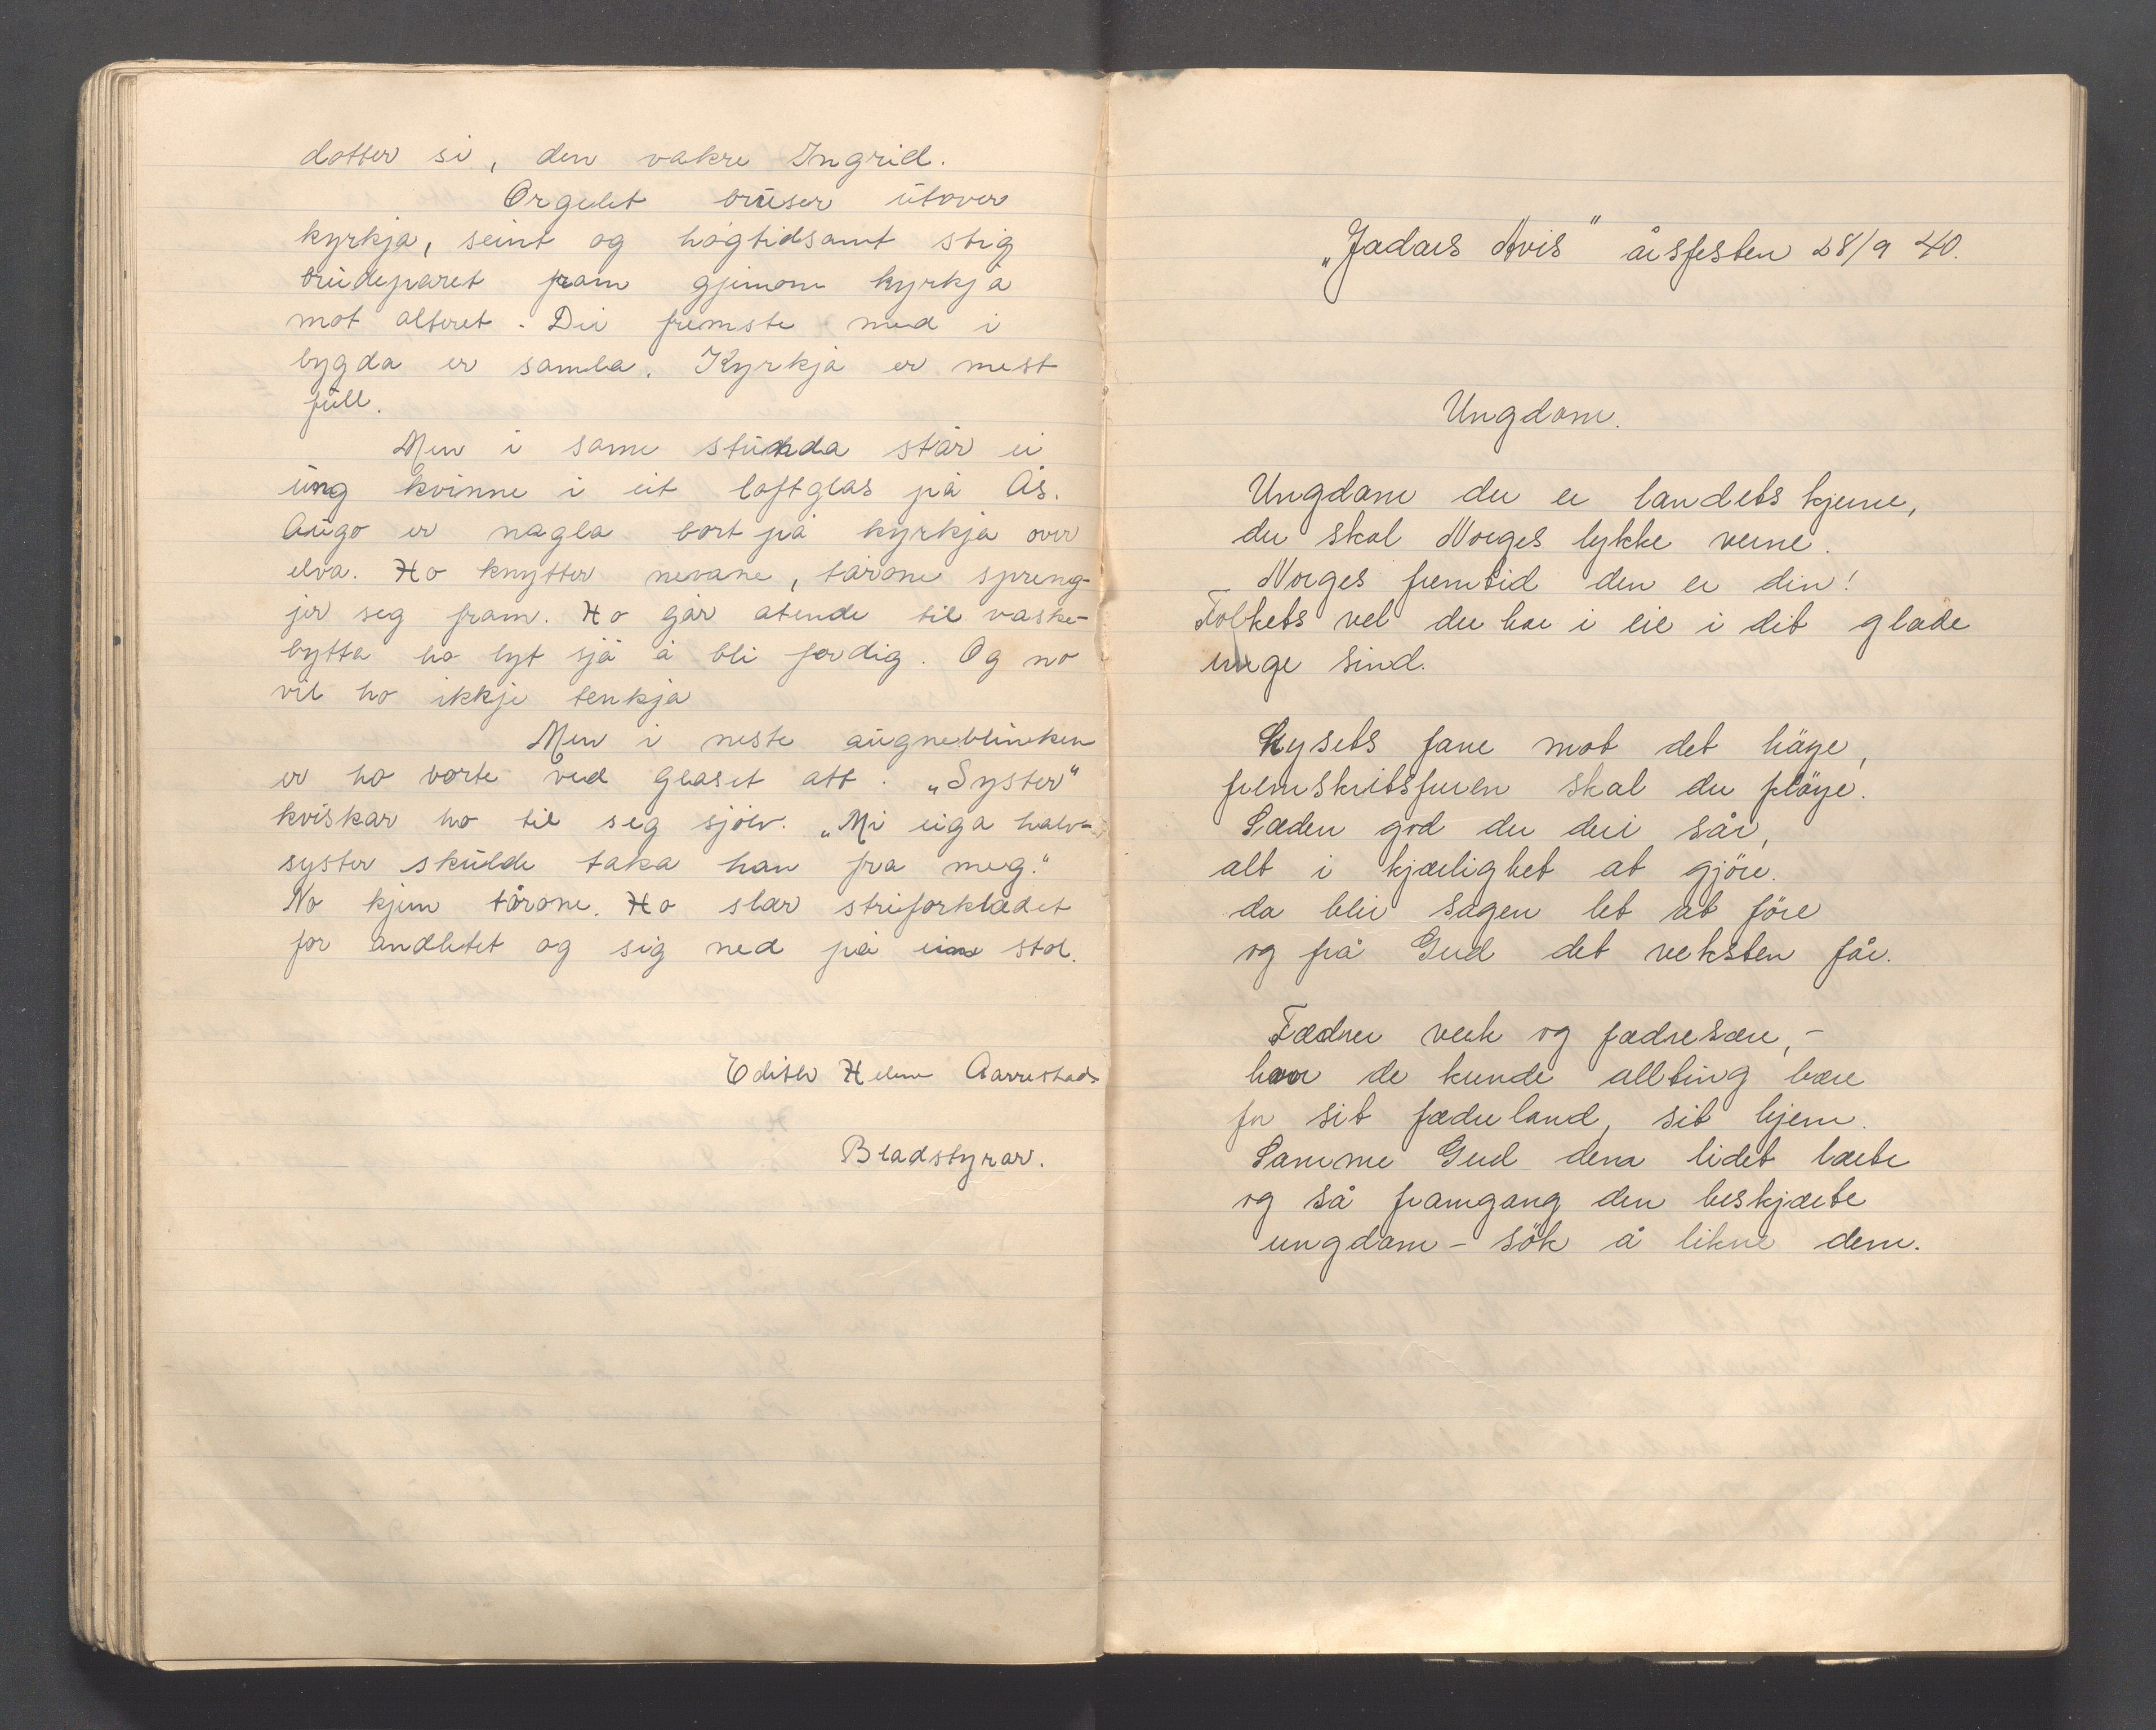 dotter si, den vakre Ingrid.
Orgelet bruser utover
kyrkja, seint og högtidsamt stig
brudeparet fram gjenom kyrkja
mot alteret. Dei fremste med i
bygda er samla. Kyrkja er mest
full.
Men i same stunda står ei
ung kvinne i eit loftglas på Ås.
Augo er nagla bort på kyrkja over
elva. Ho knytter nevane, tårone spreng-
jer seg fram. Ho går atende til vaske-
bytta ho lyt sjå å bli ferdig. Og no
vil ho ikkje tenkja
Men i neste augneblinken
er ho borte ved glaset att. „Syster"
kviskar ho til seg sjölv. „Mi eiga halv-
syster skulde taka han fra meg."
No kjem tårone. Ho slår striforklædet
for andletet og sig ned på ein stol.
Edith Helene Aarrestad
Bladstyrar.
„Jadars Avis" årsfesten 28/9 40.
Ungdom.
Ungdom du er landets kjerne,
du skal Norges lykke verne.
Norges fremtid den er din!
Folkets vel du har i eie i dit glade
unge sind.
Lysets fane mot det häye,
fremskritsfuren skal du pläye.
Sæden god du deri sår,
alt i kjærlighet at gjöre.
da blir sagen let at före
og frå Gud det veksten får.
Fædrer verk og fædresære,-
hvor de kunde allting bære
for sit fædreland, sit hjem.
Samme Gud dem lidet lærte
og så framgang dem beskjærte
ungdom - sök å likne dem.